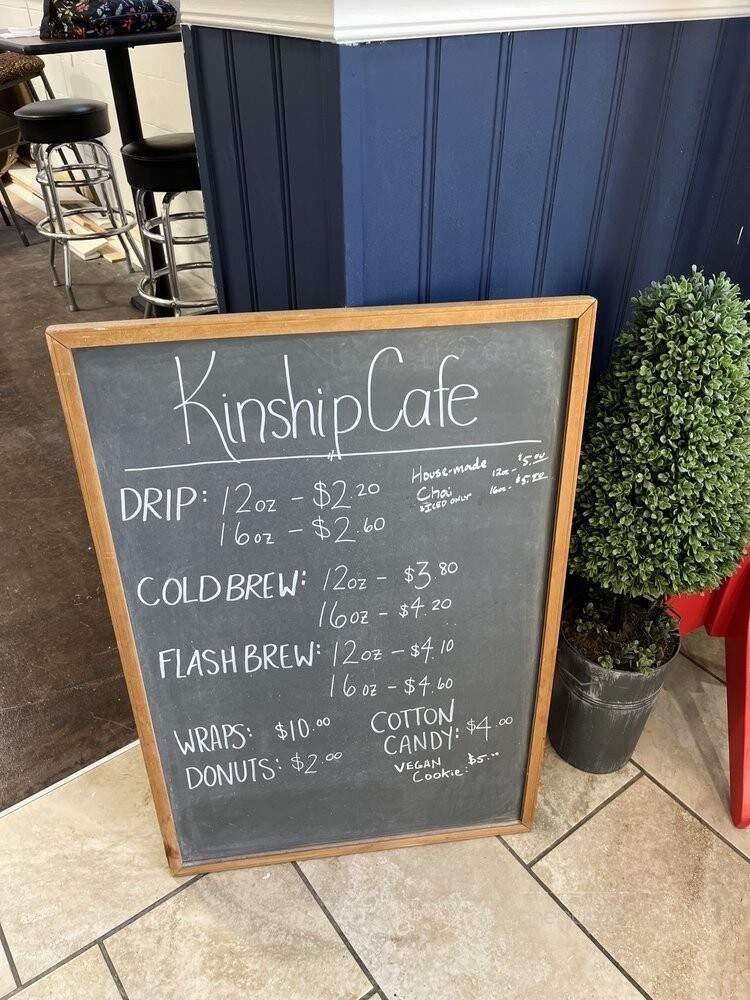 Kinship Cafe
DRIP: 12oz - $2.20
16oz - $2.60
House-made 12oz - $5.00
Chai 16oz -
ICED ONLY
COLD BREW: 12oz - $3.80
16oz - $4.20
FLASH BREW: 12oz - $4.10
16oz - $4.60
WRAPS: $10.00
DONUTS: $2.00
COTTON
CANDY: $4.00
VEGAN
Cookie: $5.00